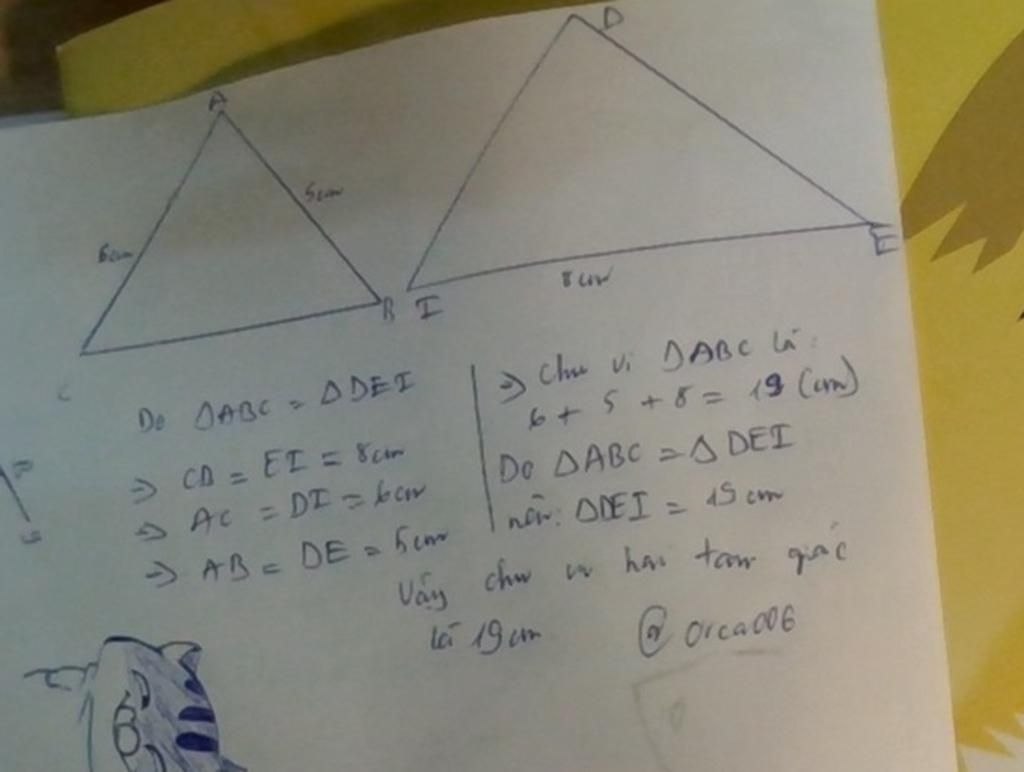 A
D
5cm
6cm
B
I
E
8cm
C
Do ΔABC = ΔDEI
⇒ CB = EI = 8cm
⇒ AC = DI = 6cm
⇒ AB = DE = 5cm
⇒ Chu vi ΔABC là:
6 + 5 + 8 = 19 (cm)
Do ΔABC = ΔDEI
nên: ΔDEI = 19cm
Vậy chu vi hai tam giác
là 19cm
@ orca006